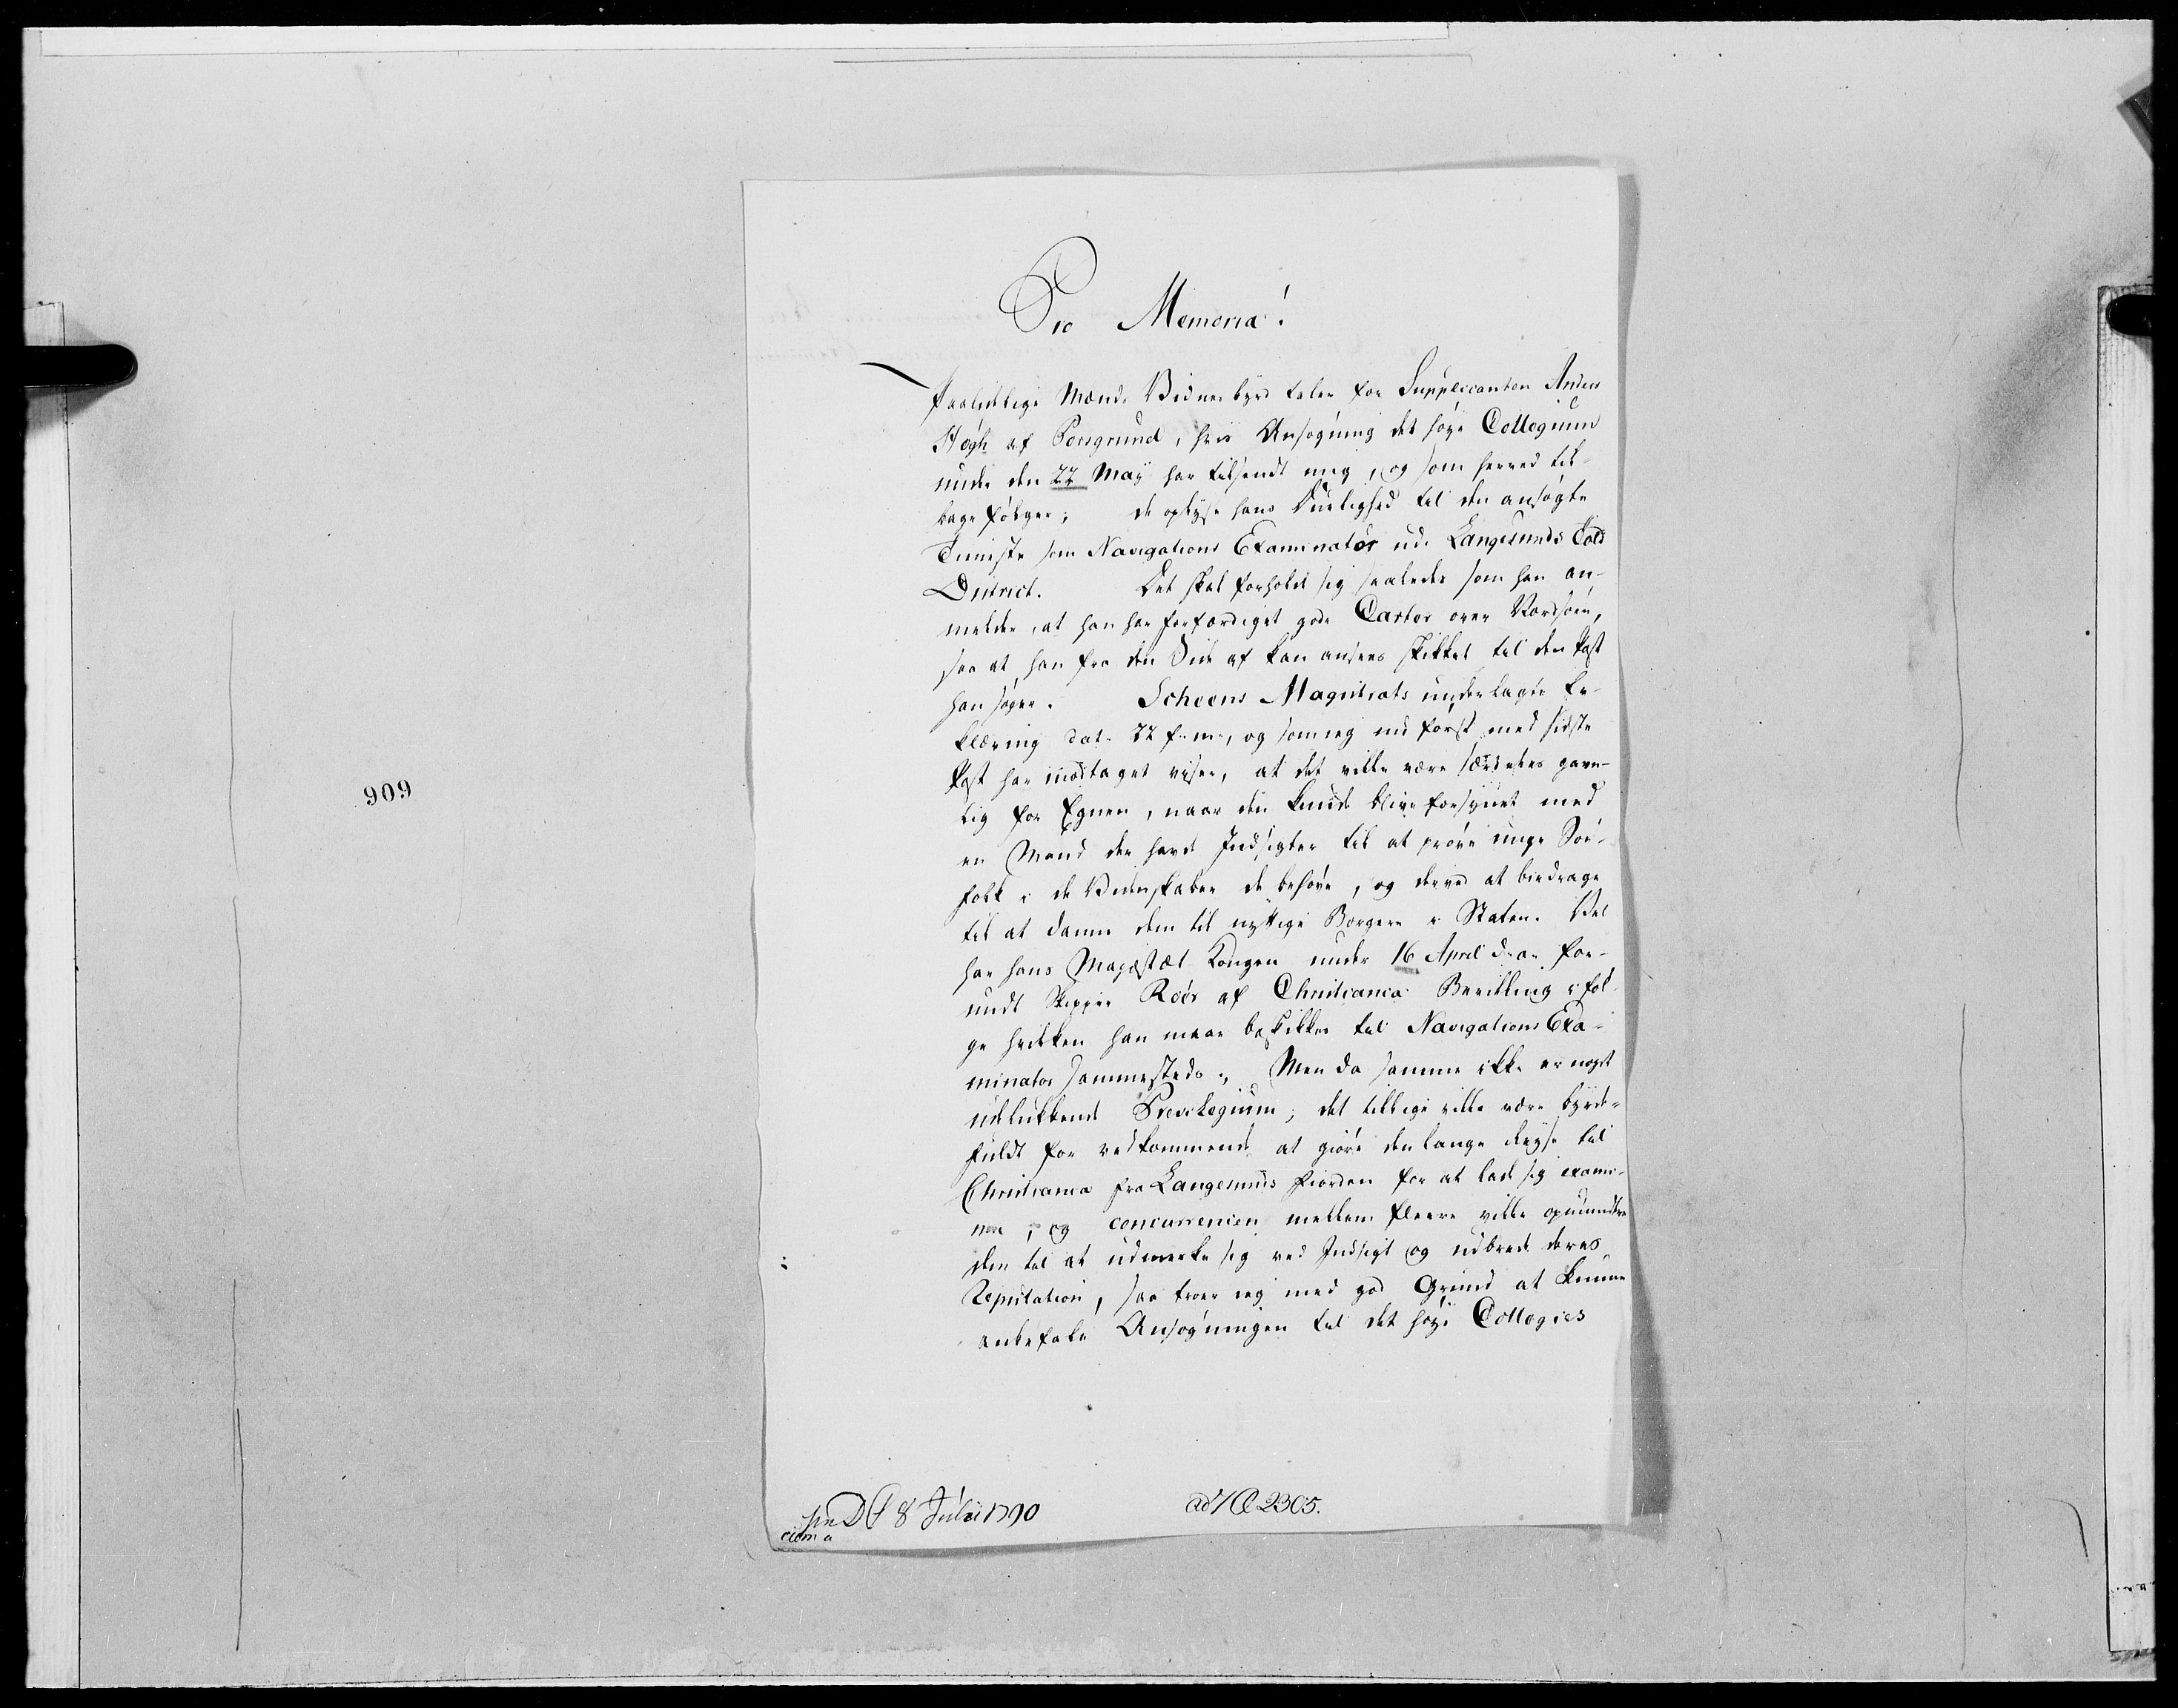 Pro Memoria!
Paalidelige Mænds Vidnesbyrd taler for Supplicanten Anders
Høgh af Porsgrund, hvis Ansøgning det høye Collegium
under den 22 May har tilsendt mig, og som herved til-
bage følger; de oplyse hans Duelighed til den ansøgte
Tieneste som Navigations Examinator udi Langesunds Told
District. Det skal forholde sig saaledes som han an-
melder, at han har forfærdiget gode Carter over Nordsøen,
saa at han fra den Side af kan ansees skikket til den Post
han søger. Scheens Magistrats underlagte Er-
klæring dat. 22 f. m., og som ieg nu først med sidste
Post har modtaget viser, at det ville være særdeles gavn-
lig for Egnen, naar den kunde blive forsynet med
en Mand der havde Indsigter til at prøve unge Søe-
folk i de Videnskaber de behøve, og derved at bidrage
til at danne dem til nyttige Borgere i Staten. Vel
har hans Majestæt Kongen under 16 April d. a. for-
undt Skipper Röör af Christiania Bevilling i føl-
ge hvilken han maae beskikkes til Navigations Exa-
minator sammesteds. Men da samme ikke er noget
udelukkende Previlegium; det tillige ville være byrde-
fuldt for vedkommende at giøre den lange Reyse til
Christiania fra Langesunds Fiorden for at lade sig exami-
nere; og concurrencen mellem fleere ville opmuntre
dem til at udmerke sig ved Indsigt og udbrede deres
Reputation, saa troer ieg med god Grund at kunne
anbefale Ansøgningen til det høye Collegies
909
pr. D 8 Julii 1790
ad 2305.